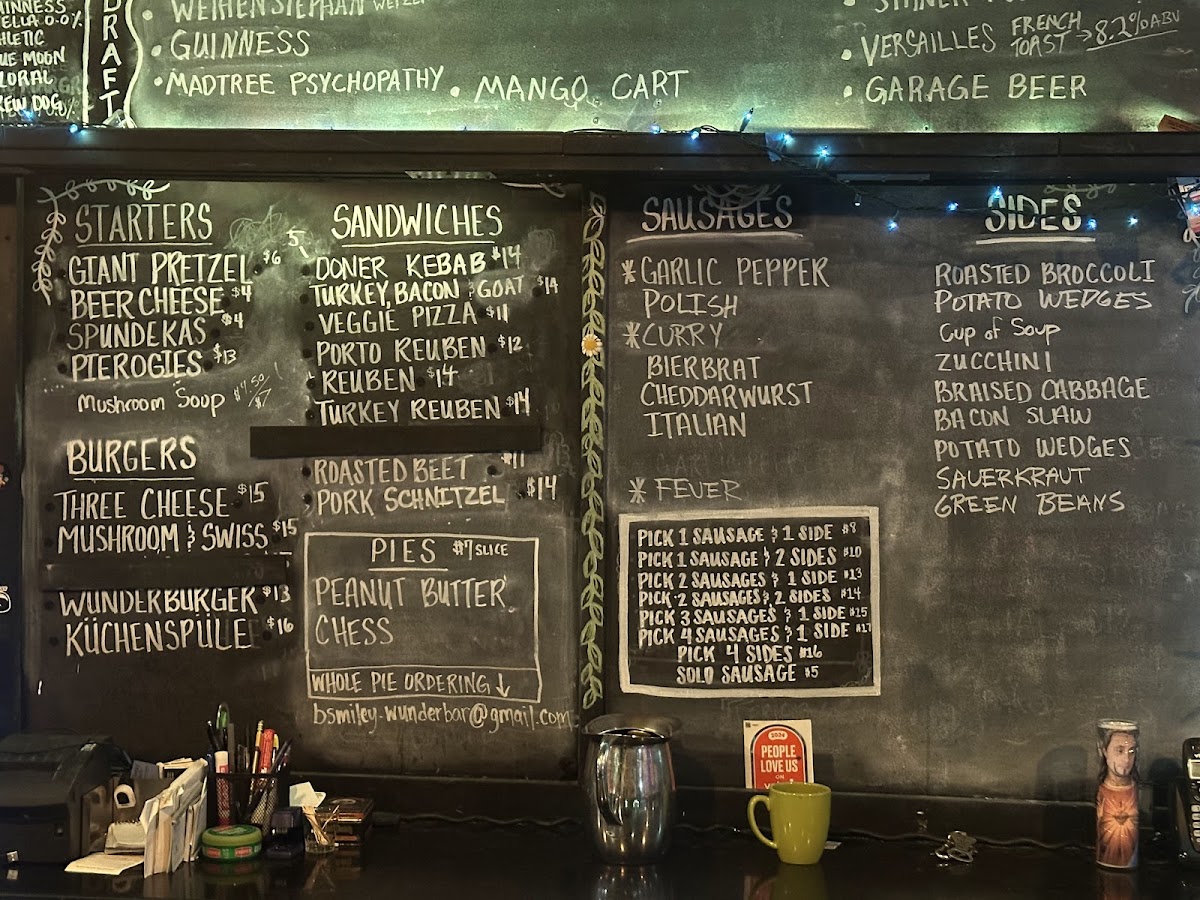 UINNESS
ELLA 0.0%
HLETIC
UE MOON
LORAL
REW DOG
DRAFT
• WEIHENSTEPHAN
• GUINNESS
• MADTREE PSYCHOPATHY
• MANGO CART
• VERSAILLES FRENCH TOAST → 8.2% ABV
• GARAGE BEER
STARTERS
GIANT PRETZEL $6
BEER CHEESE $4
SPUNDEKAS $4
PIEROGIES $13
Mushroom Soup $7.50
BURGERS
THREE CHEESE $15
MUSHROOM & SWISS $15
WUNDERBURGER $13
KÜCHENSPÜLE $16
SANDWICHES
DONER KEBAB $14
TURKEY, BACON & GOAT $14
VEGGIE PIZZA $11
PORTO REUBEN $12
REUBEN $14
TURKEY REUBEN $14
ROASTED BEET $11
PORK SCHNITZEL $14
PIES $7 SLICE
PEANUT BUTTER
CHESS
WHOLE PIE ORDERING ↓
bsmiley-wunderbar@gmail.com
SAUSAGES
* GARLIC PEPPER
POLISH
* CURRY
BIERBRAT
CHEDDARWURST
ITALIAN
* FEUER
PICK 1 SAUSAGE & 1 SIDE $8
PICK 1 SAUSAGE & 2 SIDES $10
PICK 2 SAUSAGES & 1 SIDE $13
PICK 2 SAUSAGES & 2 SIDES $14
PICK 3 SAUSAGES & 1 SIDE $15
PICK 4 SAUSAGES & 1 SIDE $17
PICK 4 SIDES $16
SOLO SAUSAGE $5
SIDES
ROASTED BROCCOLI
POTATO WEDGES
Cup of Soup
ZUCCHINI
BRAISED CABBAGE
BACON SLAW
POTATO WEDGES
SAUERKRAUT
GREEN BEANS
2024
PEOPLE
LOVE US
ON